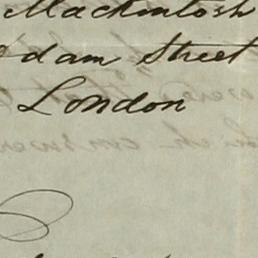 Mackintosh
Adam Street
London